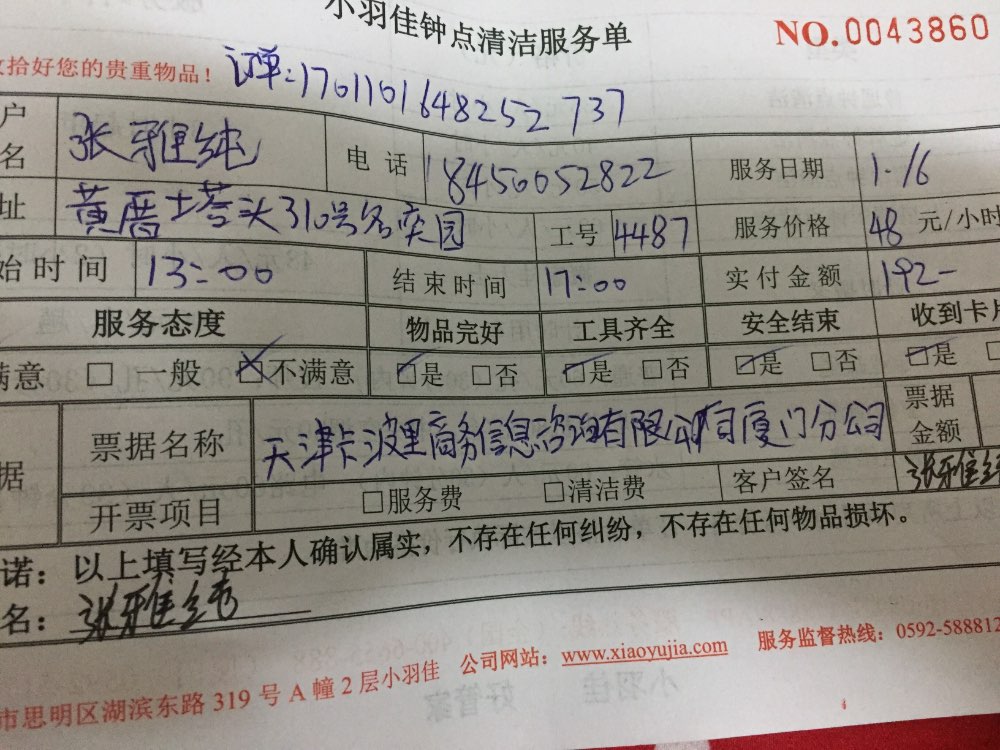 小羽佳钟点清洁服务单 NO.0043860
收拾好您的贵重物品！ 订单:1701101648252737
户名 张雅纯 电话 18450052822 服务日期 1./6
址 黄厝塔头310号名奕园 工号 4487 服务价格 48 元/小时
始时间 13:00 结束时间 17:00 实付金额 192-
服务态度 物品完好 工具齐全 安全结束 收到卡片
满意 □ 一般 ☑不满意 ☑是 □否 ☑是 □否 ☑是 □否 ☑是 □
据 票据名称 天津卡波里商务信息咨询有限公司厦门分公司 票据金额
开票项目 □服务费 □清洁费 客户签名 张雅纯
诺：以上填写经本人确认属实，不存在任何纠纷，不存在任何物品损坏。
名：张雅
市思明区湖滨东路 319 号 A 幢 2 层小羽佳 公司网站：www.xiaoyujia.com 服务监督热线：0592-588812